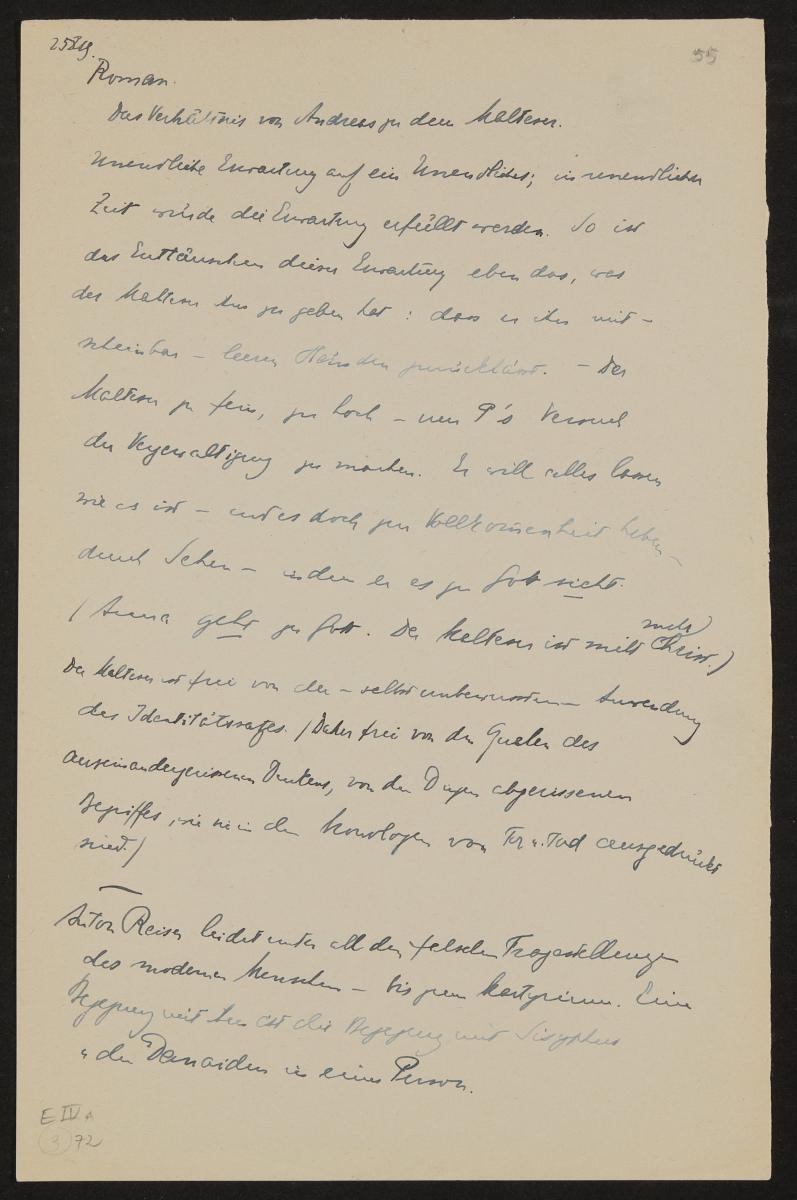 55
Roman.
Das Verhältnis von Andreas zu dem Malteser.
Unendliche Erwartung auf ein Unendliches; in unendlicher
Zeit würde die Erwartung erfüllt werden. So ist
das Enttäuschen dieser Erwartung eben das, was
der Malteser ihm zu geben hat: dass er ihn mit –
scheinbar – leeren Händen zurücklässt. – Der
Malteser zu fein, zu hoch – um P's Versuch
der Vergewaltigung zu machen. Er will alles lassen
wie es ist – und es doch zur Vollkommenheit heben –
durch Sehen – indem er es zu Gott sieht.
(Anna geht zu Gott. Der Malteser ist nicht Christ.)
Der Malteser ist frei von der – selbst unbewussten – Anwendung
des Identitätssatzes. (Daher frei von den Qualen des
auseinandergerissenen Denkens, von den Dingen abgerissenen
Begriffes, wie sie in den Monologen von Tor u. Tod ausgedrückt
sind.)
Anton Reiser leidet unter all den falschen Fragestellungen
des modernen Menschen – bis zum Martyrium. Eine
Begegnung mit ihm ist die Begegnung mit Sisyphus
u den Danaiden in einer Person.
E IV A
3 72